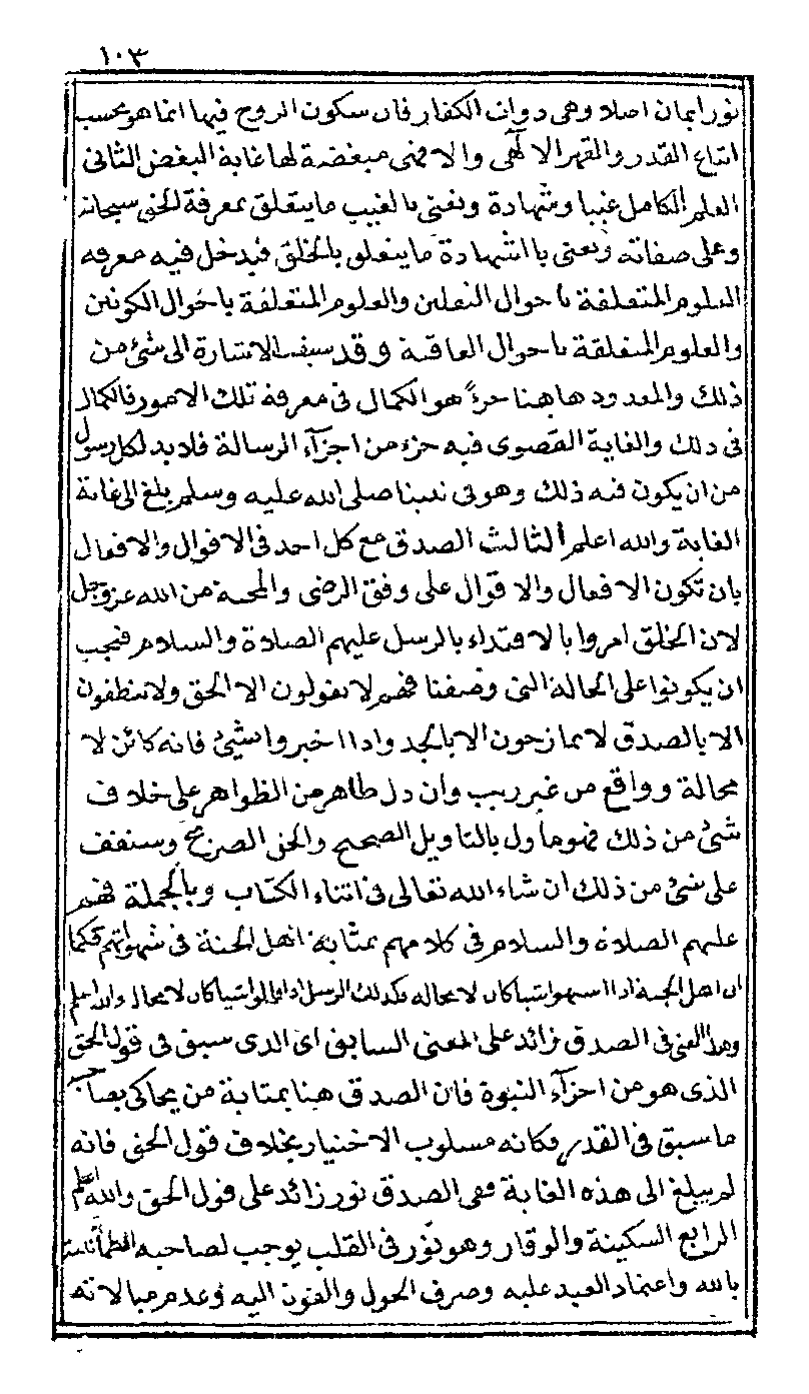 ١٠٣
نور ايمان اصلا وهى ذوات الكفار فان سكون الروح فيها انما هو بحسب
اتباع القدر والقهر الالهى والا فهى مبغضة لها غاية البغض الثانى
العلم الكامل غيبا وشهادة ونعنى بالغيب ما يتعلق بمعرفة الحق سبحانه
وعلى صفاته ونعنى بالشهادة ما يتعلق بالخلق فيدخل فيه معرفه
العلوم المتعلقة باحوال الثقلين والعلوم المتعلقة باحوال الكونين
والعلوم المتعلقة باحوال العاقبة وقد سبقت الاشارة الى شئ من
ذلك والمعدود هاهنا جزءً هو الكمال فى معرفة تلك الامور فالكمال
فى ذلك والغاية القصوى فيه جزء من اجزآء الرسالة فلابد لكل رسول
من ان يكون فيه ذلك وهو فى نبينا صلى الله عليه وسلم بلغ الى غاية
الغاية والله اعلم الثالث الصدق مع كل احد فى الاقوال والافعال
بان تكون الافعال والاقوال على وفق الرضى والمحبة من الله عز وجل
لان الخلق امروا بالاقتداء بالرسل عليهم الصلاة والسلام فيجب
ان يكونوا على الحالة التى وصفنا فهم لا يقولون الا الحق ولا ينطقون
الا بالصدق لا يمازحون الا بالجد واذا اخبروا بشئ فانه كائن لا
محالة وواقع من غير ريب وان دل ظاهر من الظواهر على خلاف
شئ من ذلك فهو مأول بالتاويل الصحيح والحق الصريح وستقف
على شئ من ذلك ان شاء الله تعالى فى اثناء الكتاب وبالجملة فهم
عليهم الصلاة والسلام فى كلامهم بمثابة اهل الجنة فى شهواتهم فكما
ان اهل الجنة اذا اشتهوا شيا كان لا محالة فكذلك الرسل اذا قالوا شيا كان لا محالة والله اعلم
وهذا المعنى فى الصدق زائد على المعنى السابق اى الذى سبق فى قول الحق
الذى هو من اجزآء النبوة فان الصدق هنا بمثابة من يحاكى بصاحبه
ما سبق فى القدر فكانه مسلوب الاختيار بخلاف قول الحق فانه
لم يبلغ الى هذه الغاية ففى الصدق نور زائد على قول الحق والله اعلم
الرابع السكينة والوقار وهو نور فى القلب يوجب لصاحبه الطمأنينة
بالله واعتماد العبد عليه وصرف الحول والقوة اليه وعدم مبالاته